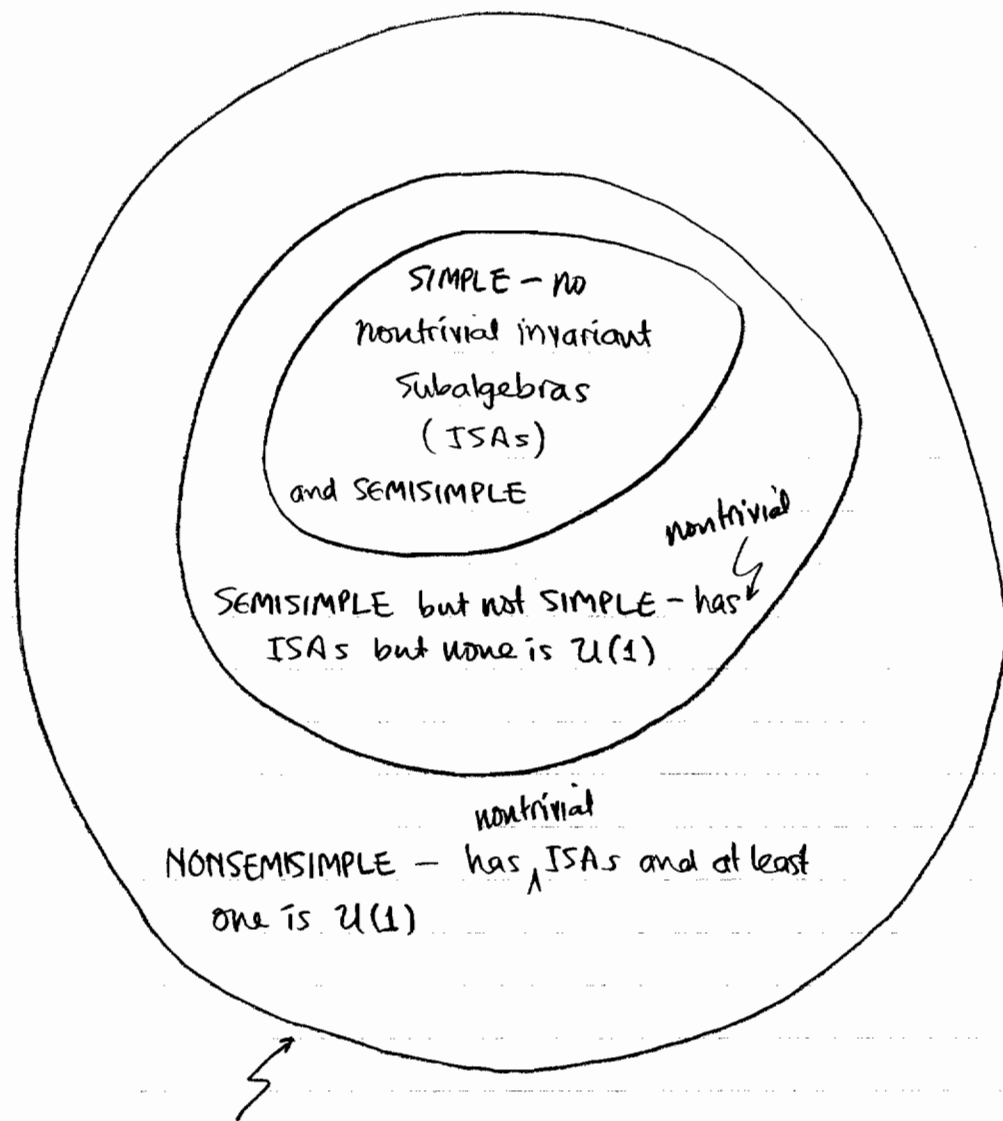 SIMPLE - no
nontrivial invariant
subalgebras
(ISAs)
and SEMISIMPLE
nontrivial
SEMISIMPLE but not SIMPLE - has
ISAs but none is U(1)
nontrivial
NONSEMISIMPLE - has ISAs and at least
one is U(1)